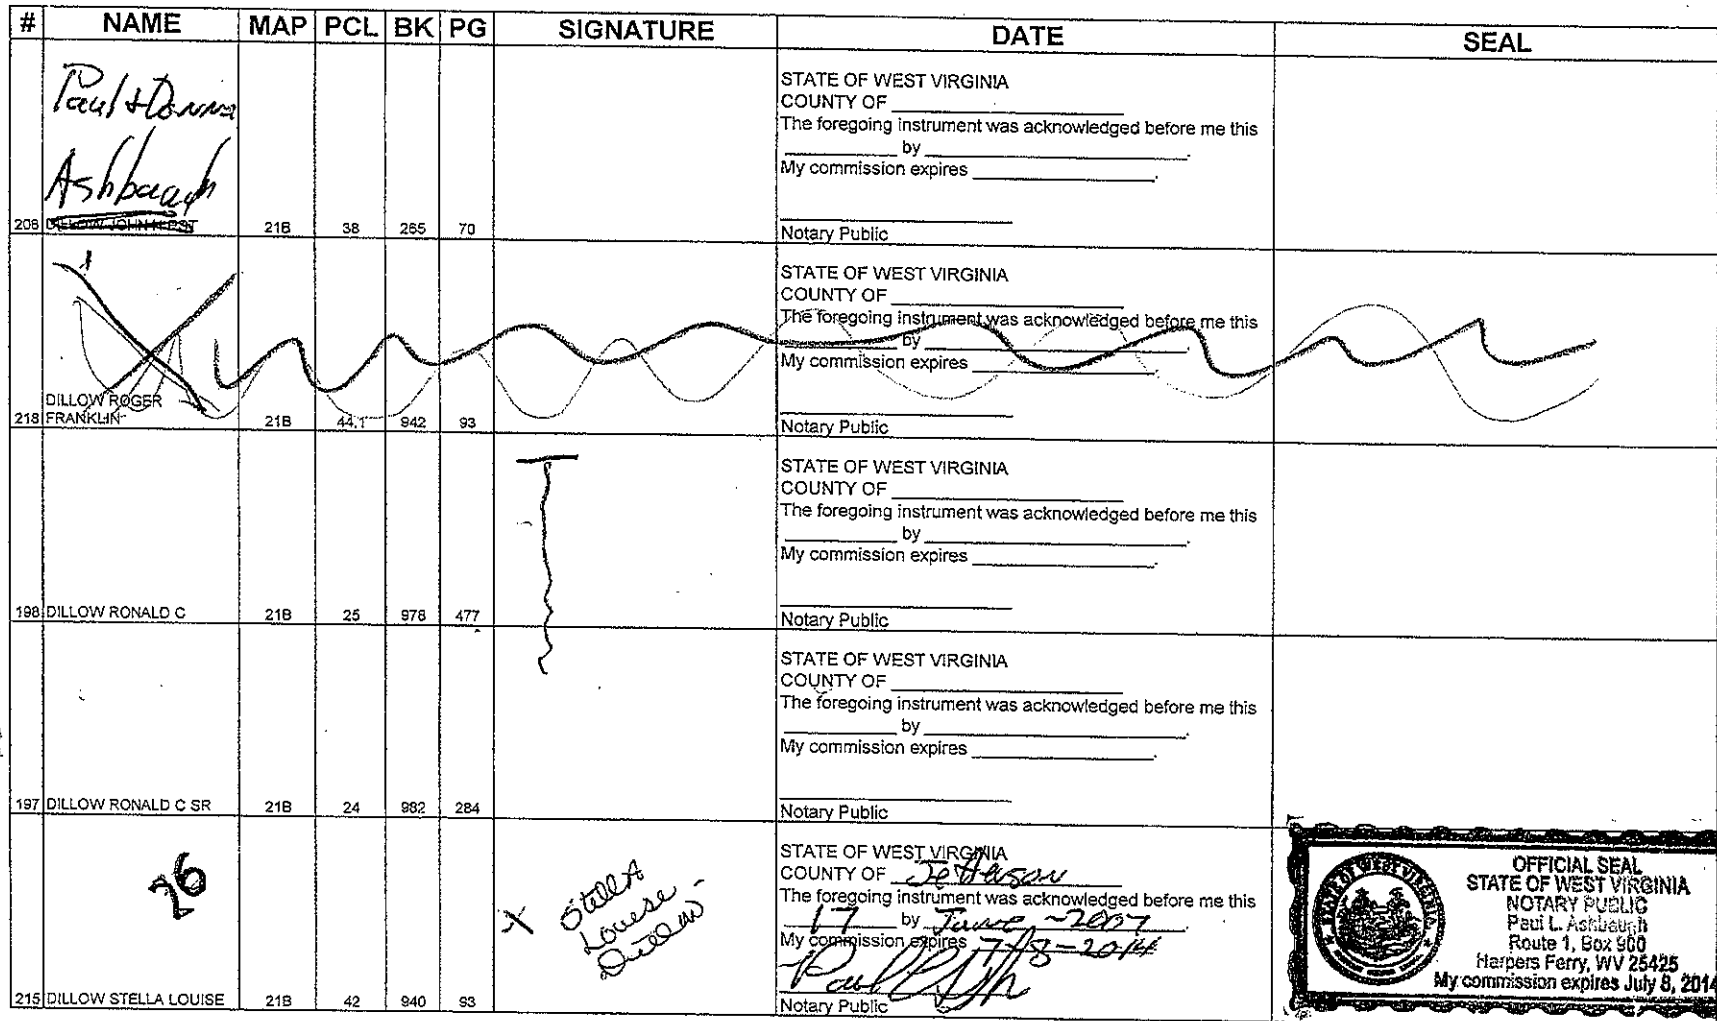 # NAME MAP PCL BK PG SIGNATURE DATE SEAL
Paul + Donna
Ashbaugh
208 DILLOW JOHN HERST 21B 38 265 70
STATE OF WEST VIRGINIA
COUNTY OF
The foregoing instrument was acknowledged before me this
by
My commission expires
Notary Public
218 DILLOW ROGER
FRANKLIN 21B 44.1 942 93
STATE OF WEST VIRGINIA
COUNTY OF
The foregoing instrument was acknowledged before me this
by
My commission expires
Notary Public
198 DILLOW RONALD C 21B 25 978 477
STATE OF WEST VIRGINIA
COUNTY OF
The foregoing instrument was acknowledged before me this
by
My commission expires
Notary Public
197 DILLOW RONALD C SR 21B 24 982 284
STATE OF WEST VIRGINIA
COUNTY OF
The foregoing instrument was acknowledged before me this
by
My commission expires
Notary Public
26
215 DILLOW STELLA LOUISE 21B 42 940 93
X Stella
Louese
Dillow
STATE OF WEST VIRGINIA
COUNTY OF Jefferson
The foregoing instrument was acknowledged before me this
17 by June - 2007
My commission expires 7/8-2014
Notary Public
OFFICIAL SEAL
STATE OF WEST VIRGINIA
NOTARY PUBLIC
Paul L. Ashbaugh
Route 1, Box 900
Harpers Ferry, WV 25425
My commission expires July 8, 2014